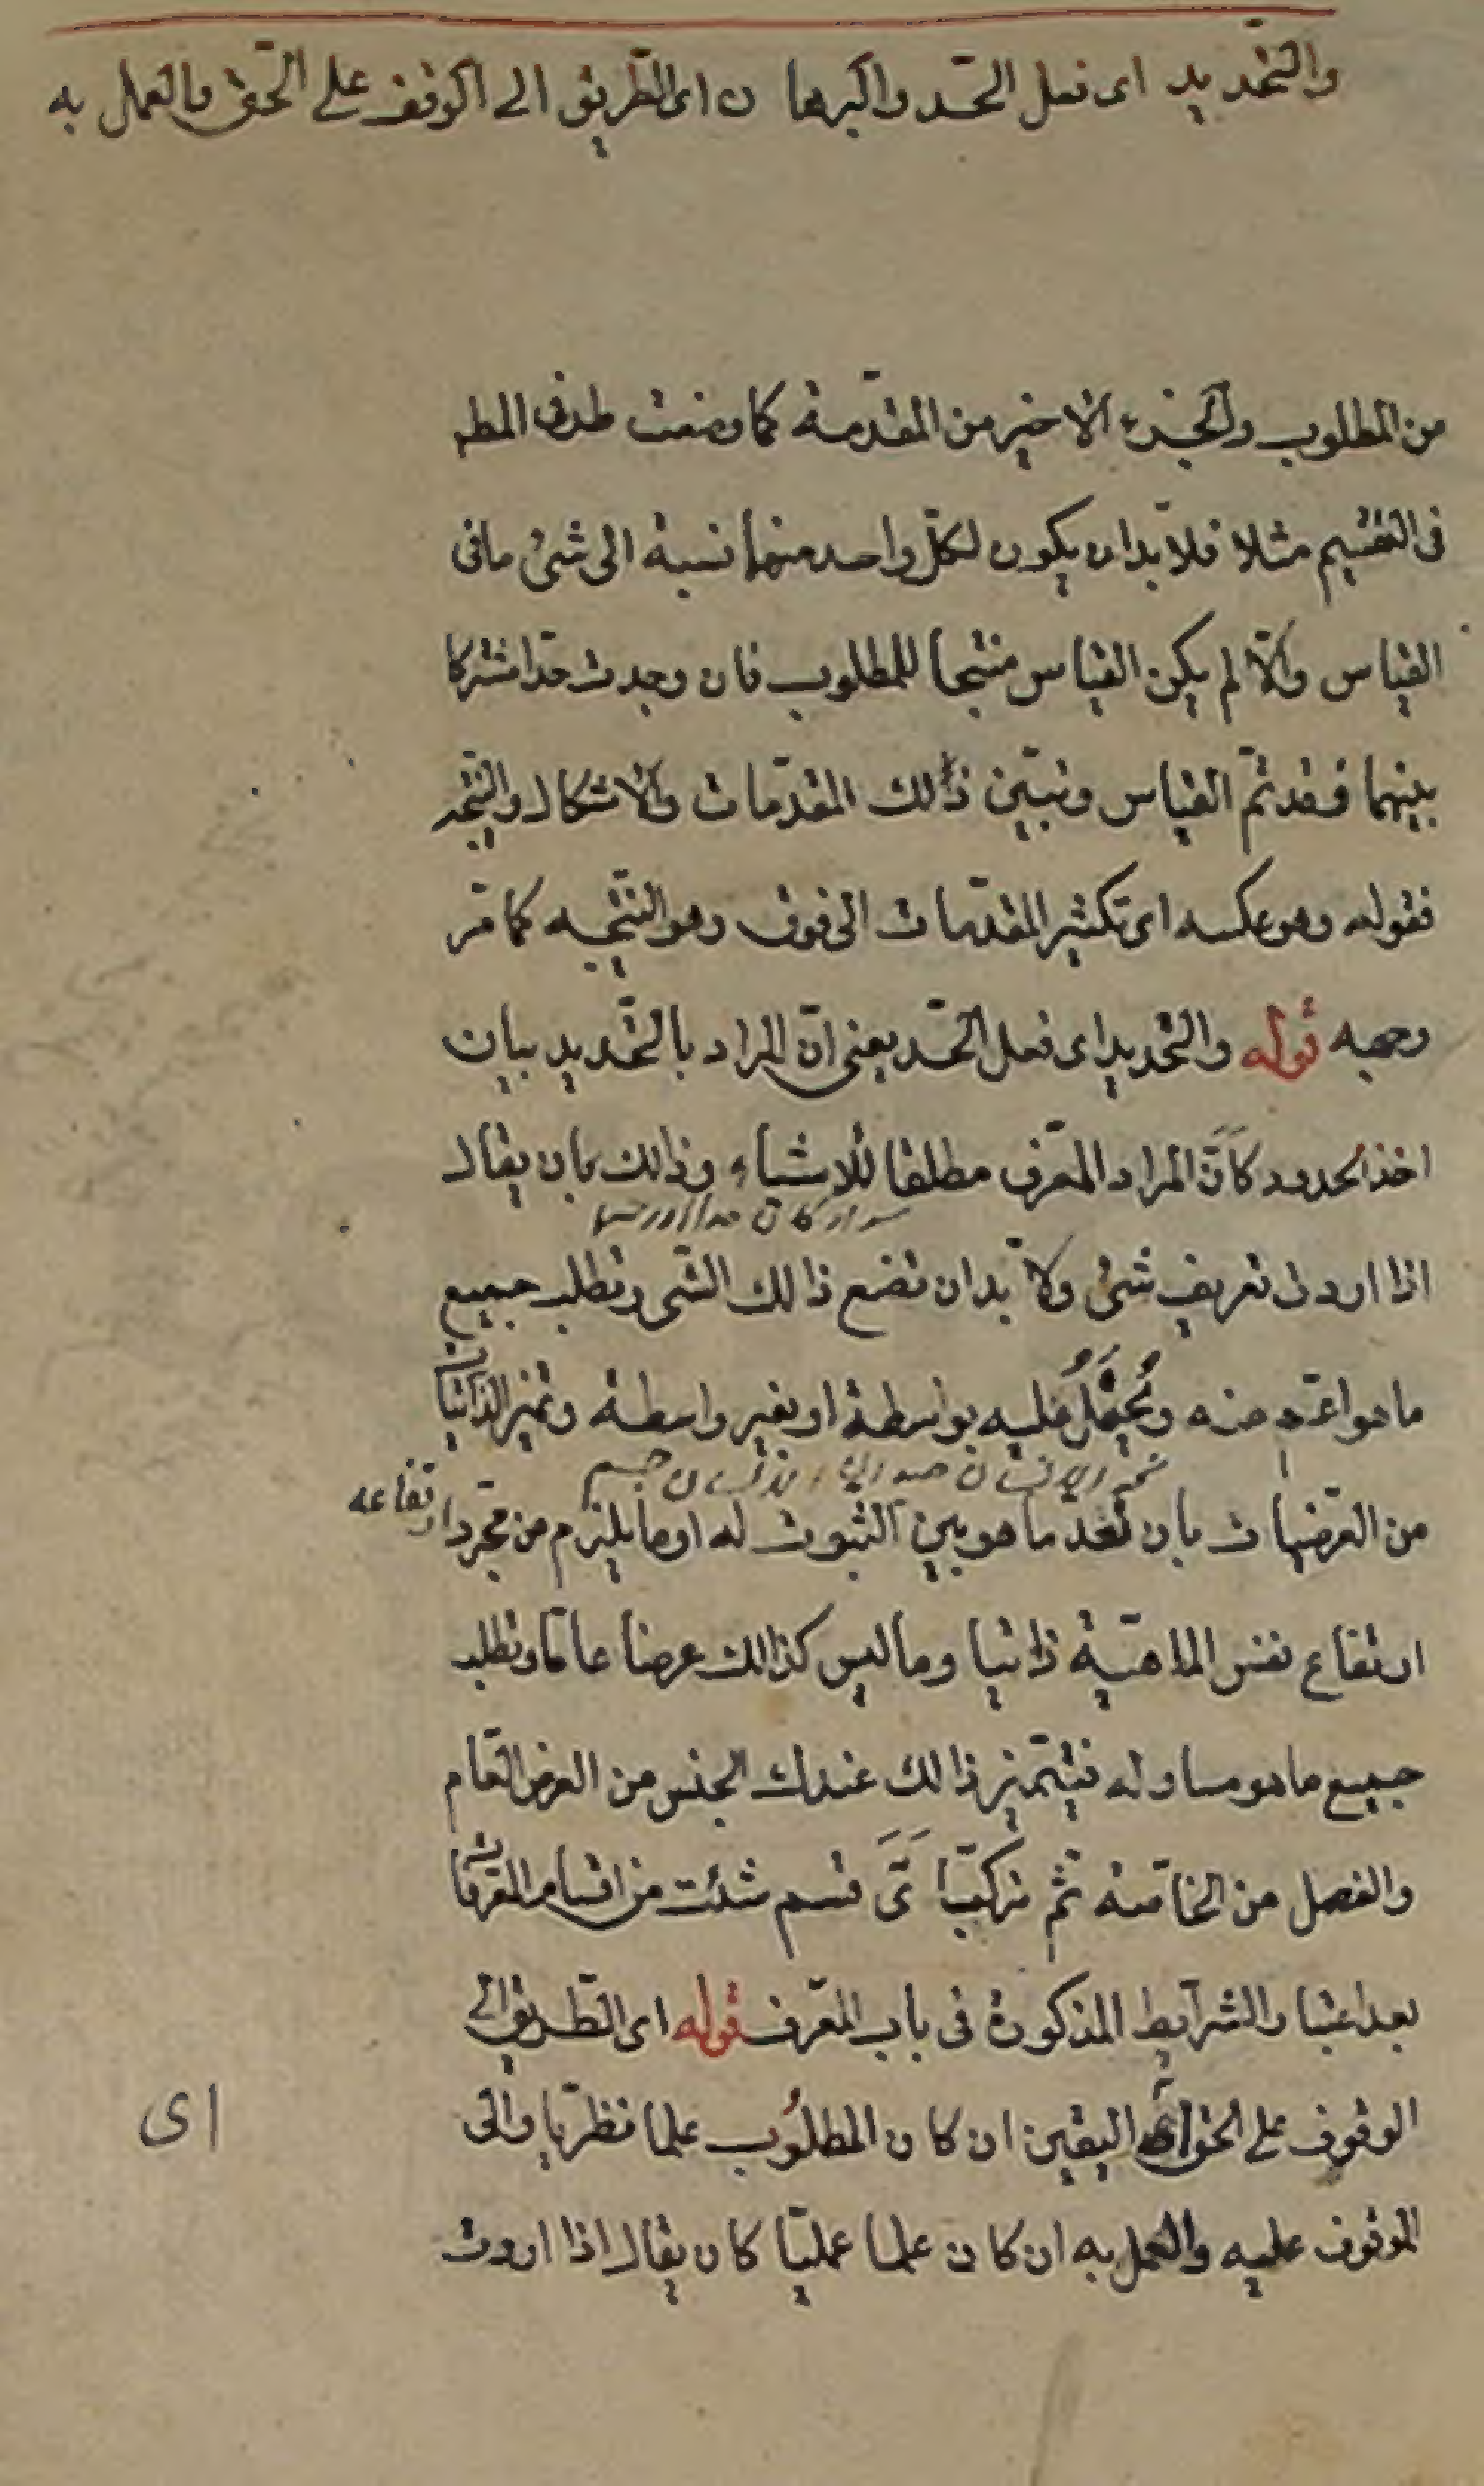 والتحديد اى فعل الحد والبرهان اى الطريق الى الوقوف على الحق والعمل به
من المطلوب والجزء الاخير من المقدمة كما وضعت طرفى المطلـ
فى التقسيم مثلا فلا بد ان يكون لكل واحد منهما نسبة الى شئ ما فى
القياس والا لم يكن القياس منتجا للمطلوب فان وجدت حدا مشتركا
بينهما فقد تم القياس وتبين ذلك المقدمات والاشكال والنتيجه
فقوله وهو عكسه اى تكثير المقدمات الى فوق وهو النتيجه كما مر
وجهه قوله والتحديد اى فعل الحد يعنى ان المراد بالتحديد بيان
اخذ الحدود كان المراد المعرف مطلقا للاشياء وذلك بان يقال
سواء كان حدا او رسما
اذا اردت تعريف شئ ولا بد ان تضع ذالك الشى وتطلب جميع
ما هو اعم منه ويحمل عليه بواسطة او بغير واسطة وتميز الذاتيات
من العرضيات بان تعد ما هو بين الثبوت له او ما يلزم من مجرد ارتفاعه
ارتفاع نفس الماهية ذاتيا وما ليس كذالك عرضا عاما وتطلب
جميع ما هو مساو له فيتميز ذالك عندك الجنس من العرض العام
والفصل من الخاصه ثم تركب اى قسم شئت من اقسام المعرفات
بعد اعتبار الشرايط المذكورة فى باب المعرف قوله اى الطريق الى
الوقوف على الحق اى اليقين ان كان المطلوب علما نظريا والى
الوقوف عليه والعمل به ان كان علما عمليا كان يقال اذا اردت
اى